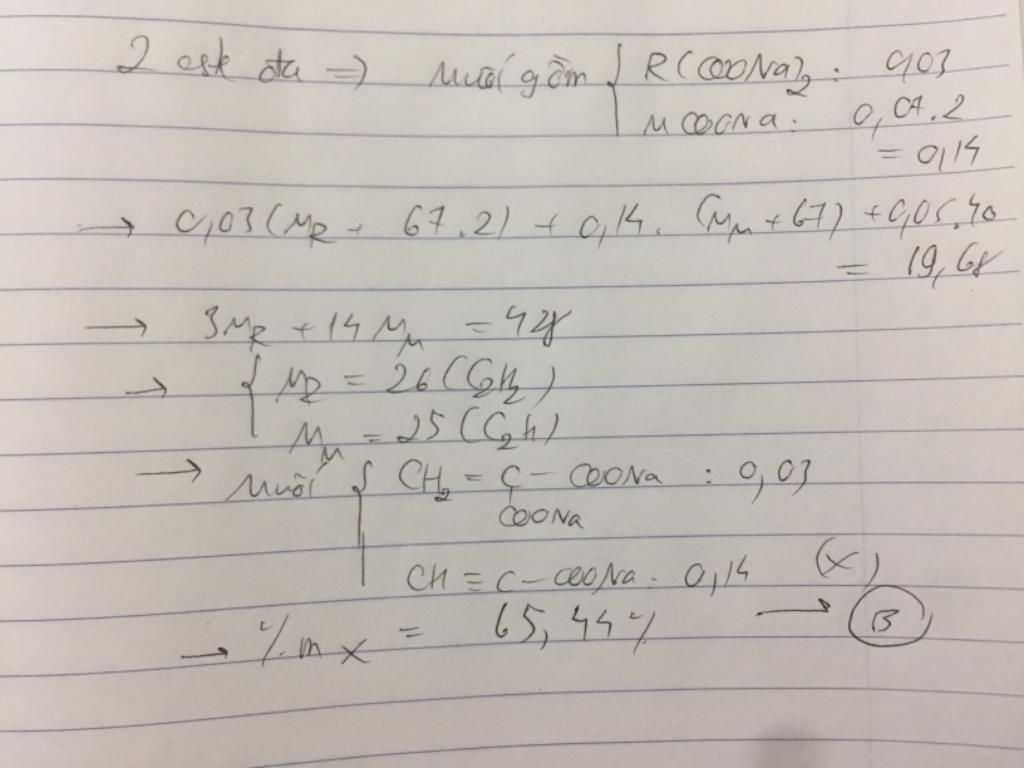 2 este đa => Muối gồm { R(COONa)₂ : 0,03
MCOONa : 0,07.2
= 0,14
→ 0,03(M_R + 67.2) + 0,14. (M_M + 67) + 0,05.40
= 19,68
→ 3M_R + 14M_M = 428
→ { M_R = 26 (C₂H₂)
M_M = 25 (C₂H)
→ Muối { CH₂ = C – COONa : 0,03
COONa
CH ≡ C – COONa . 0,14 (X)
→ % m X = 65,44% → B